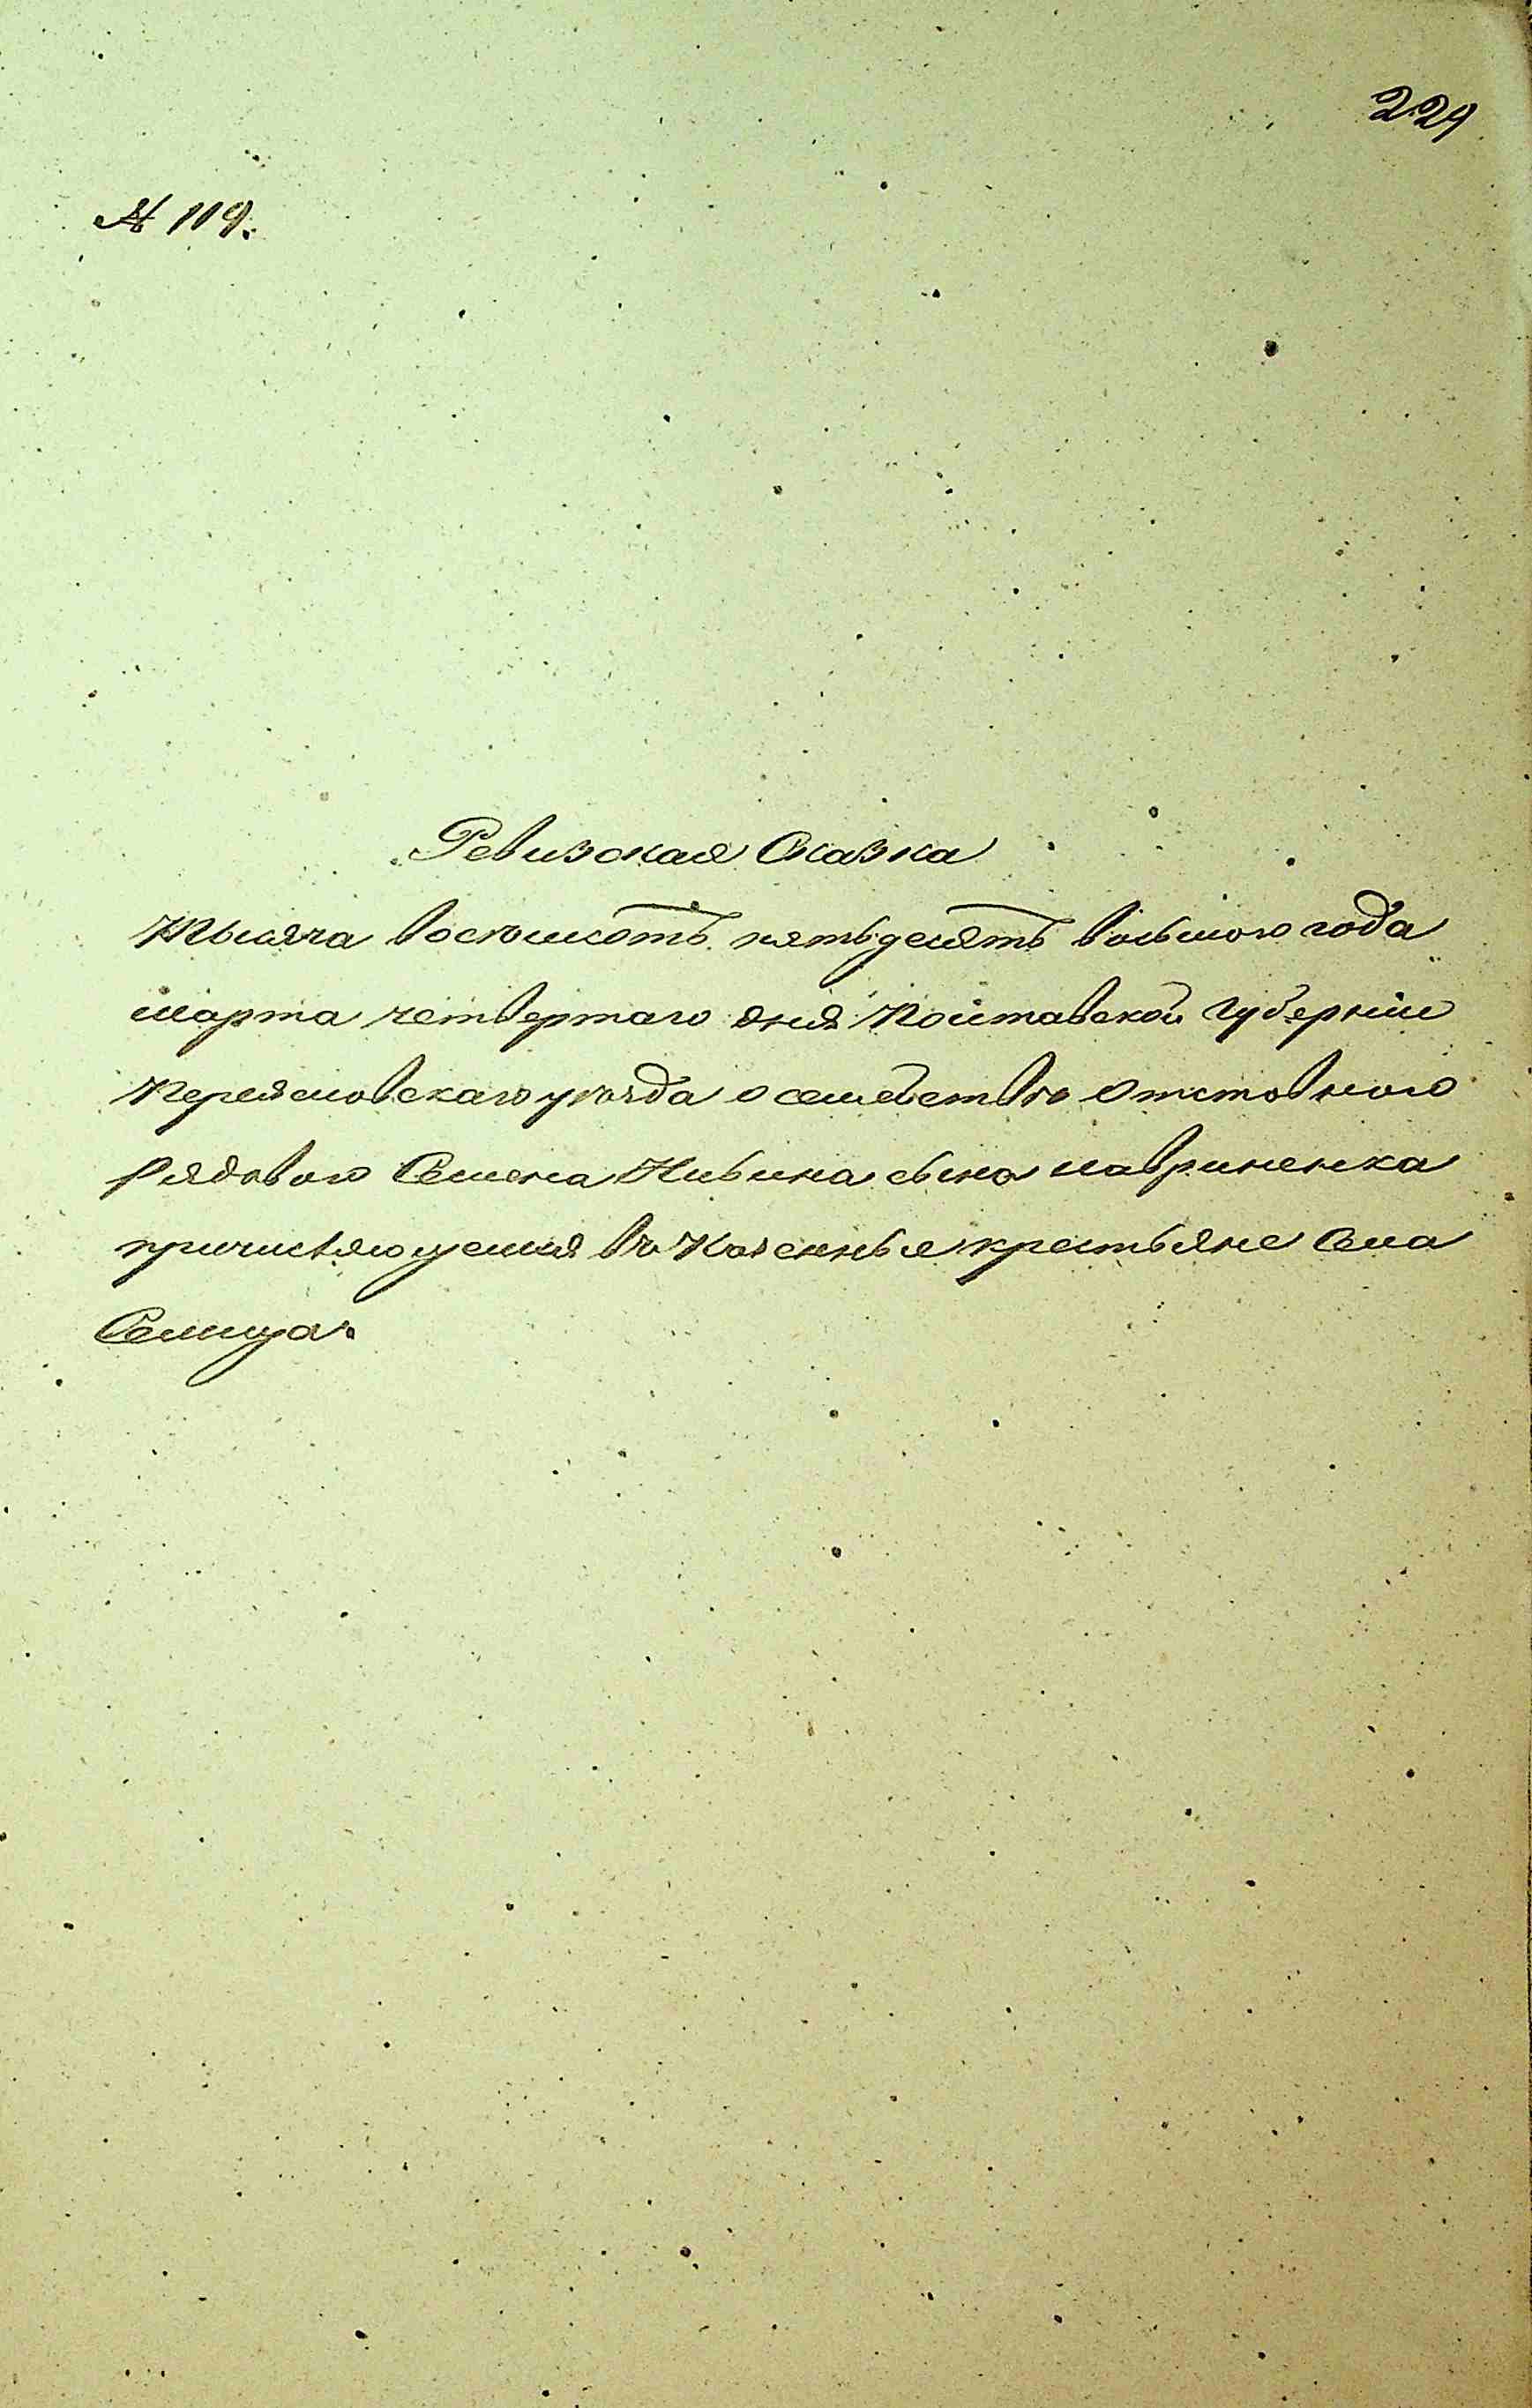 229
№ 119.
Ревизская Сказка
Тысяча восемьсотъ пятьдесятъ восьмого года
марта четвертаго дня Полтавской Губерніи
Переяславскаго уѣзда о семействѣ Отставного
Рядового Семена сына Лавриненка
причисляющемся въ Казенные крестьяне Села